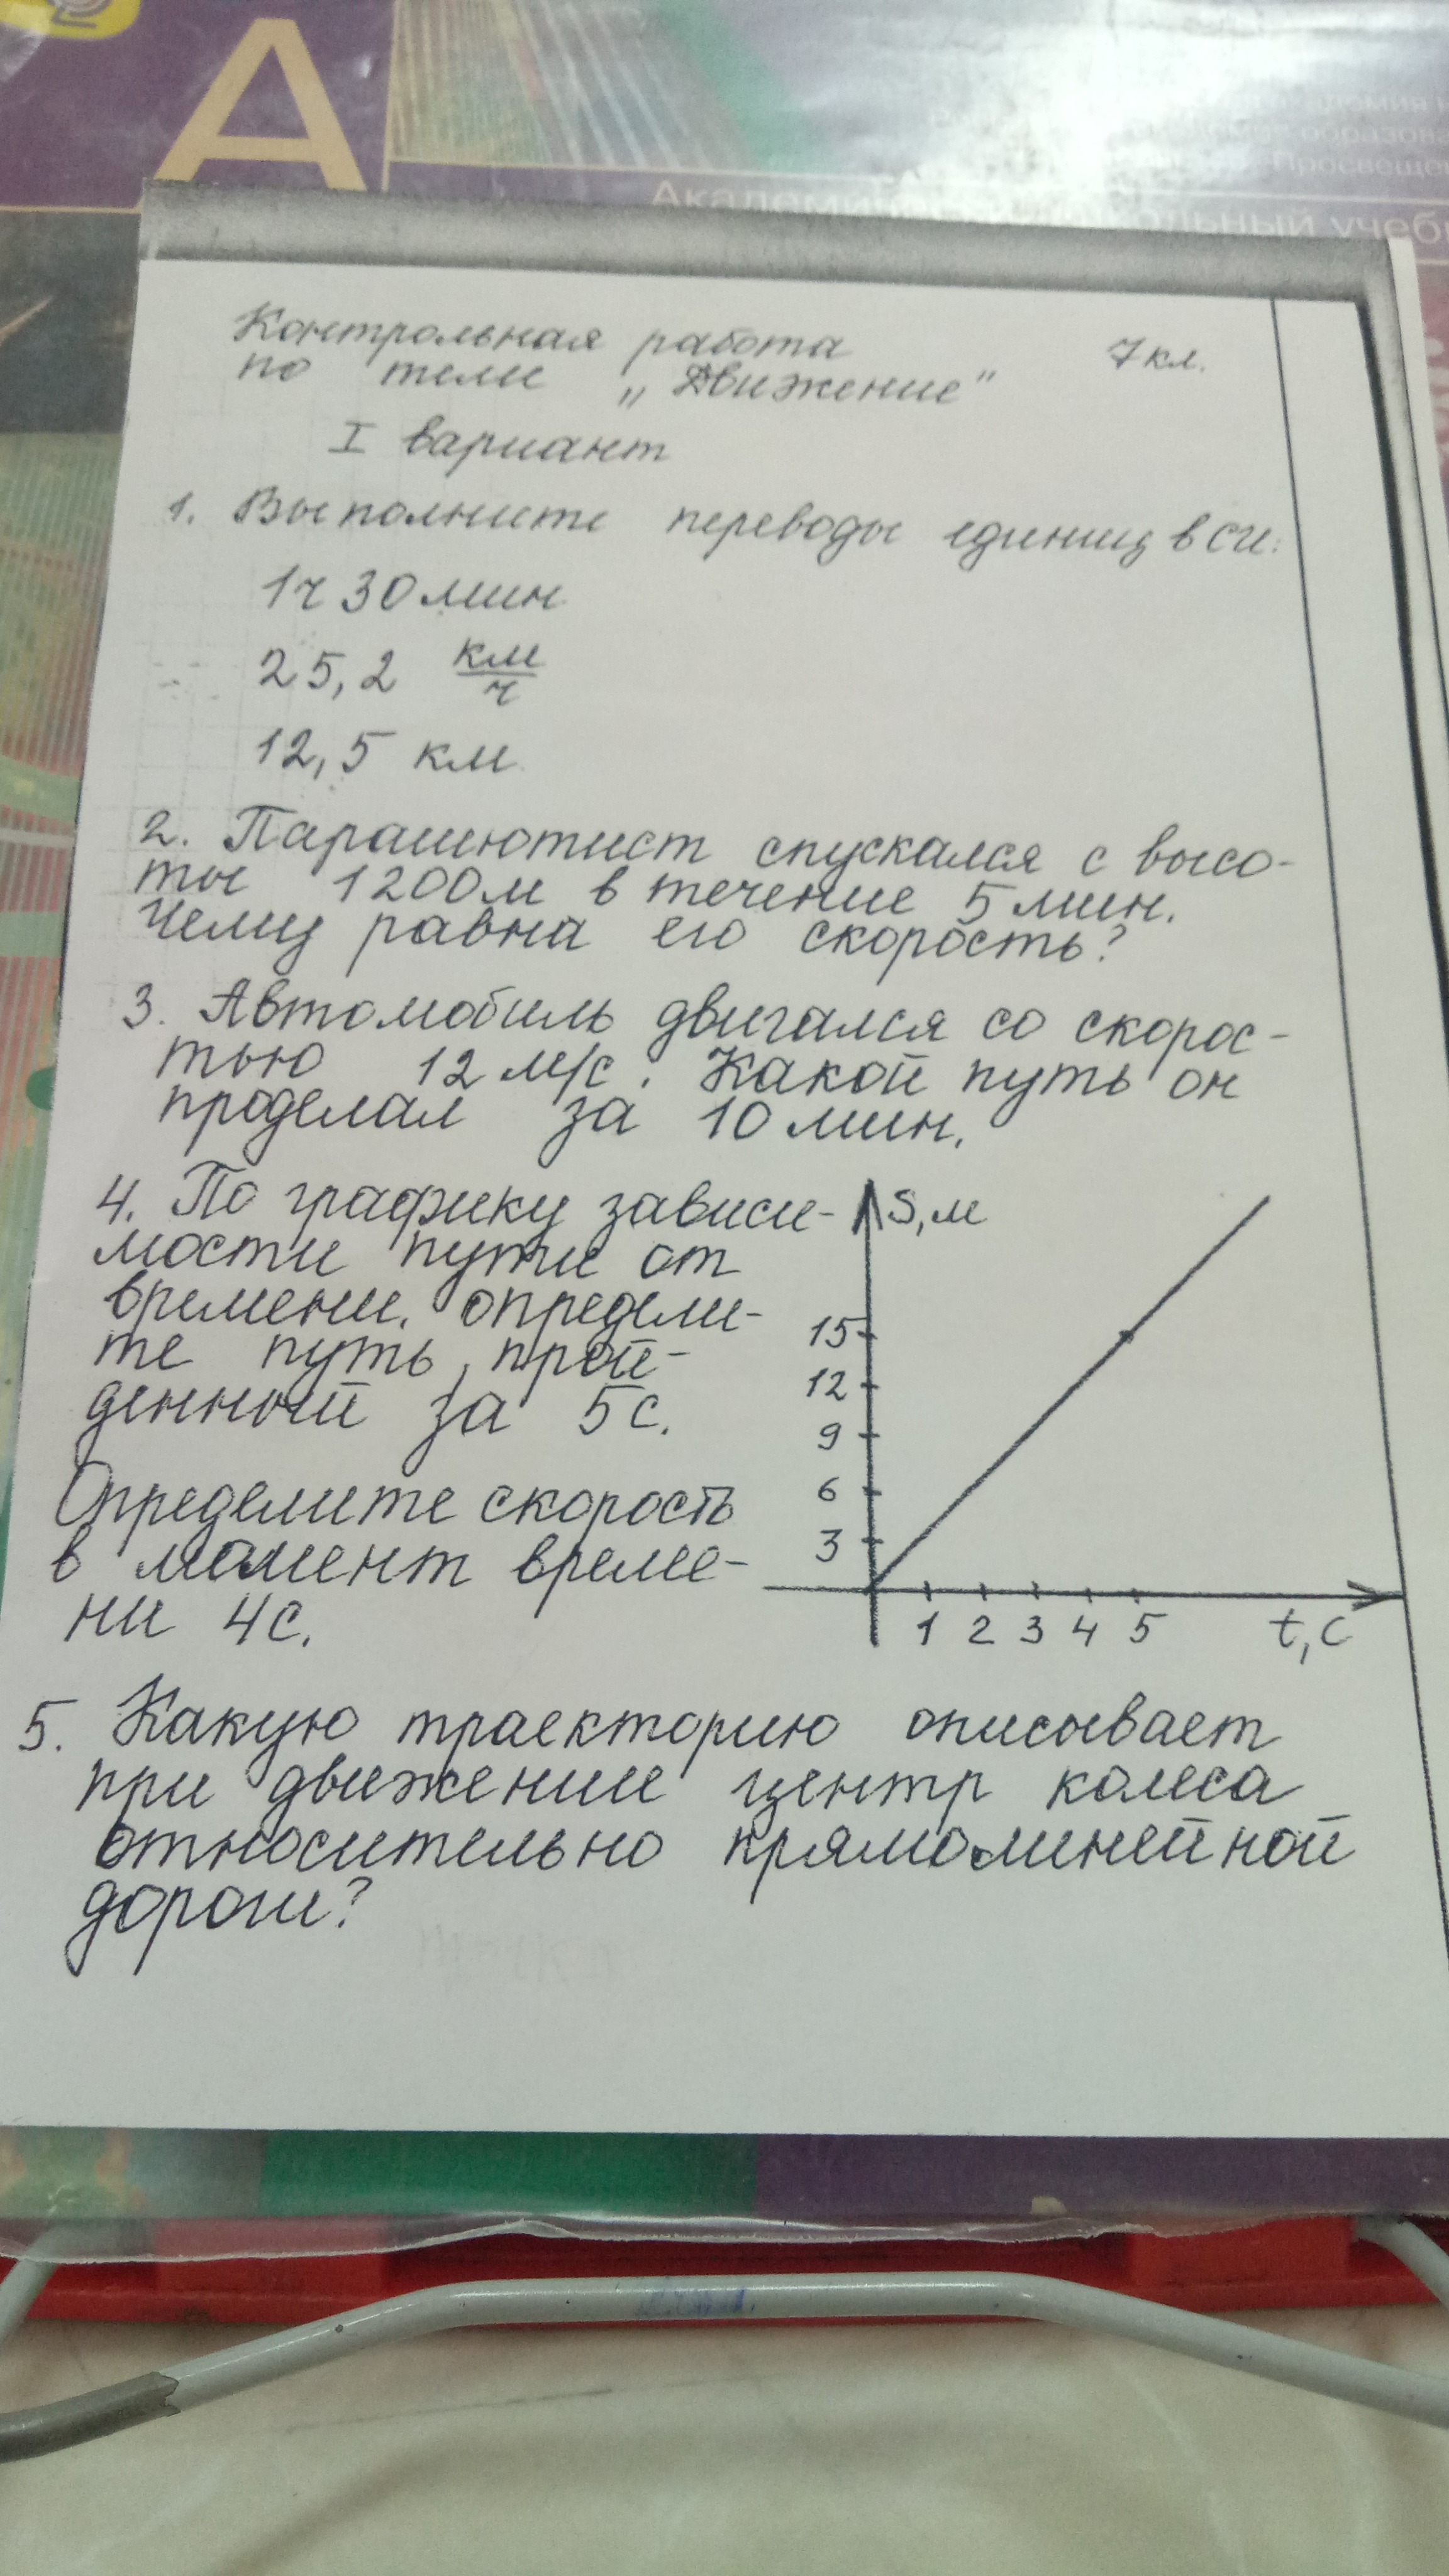 А
Академический школьный учеб
Контрольная работа 7 кл.
по теме „Движение"
I вариант
1. Выполните переводы единиц в СИ:
1ч 30 мин
25,2 км/ч
12,5 км
2. Парашютист спускался с высо-
ты 1200м в течение 5 мин.
Чему равна его скорость?
3. Автомобиль двигался со скорос-
тью 12 м/с. Какой путь он
проделал за 10 мин.
4. По графику зависи-
мости пути от
времени. определи-
те путь, прой-
денный за 5с.
Определите скорость
в момент време-
ни 4с.
S,м
15
12
9
6
3
1 2 3 4 5 t,с
5. Какую траекторию описывает
при движении центр колеса
относительно прямолинейной
дороги?